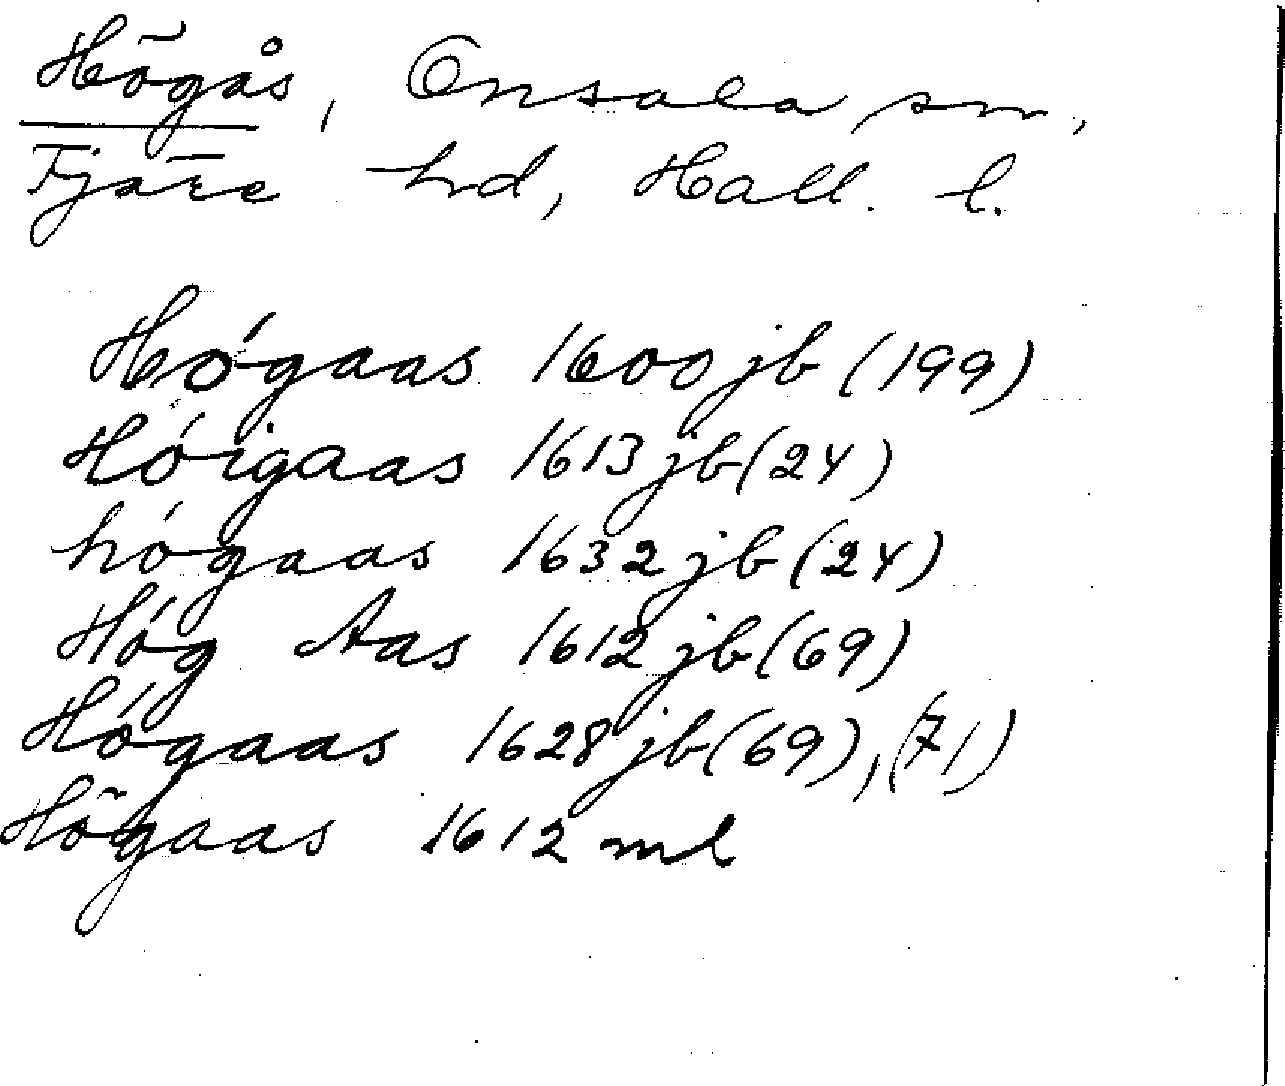 Högås, Onsala sn,
Fjäre hd, Hall. l.
Hógaas 1600 jb (199)
Hóigaas 1613 jb (24)
hógaas 1632 jb (24)
Hóg Aas 1612 jb (69)
Hógaas 1628 jb (69), (71)
Högaas 1612 ml